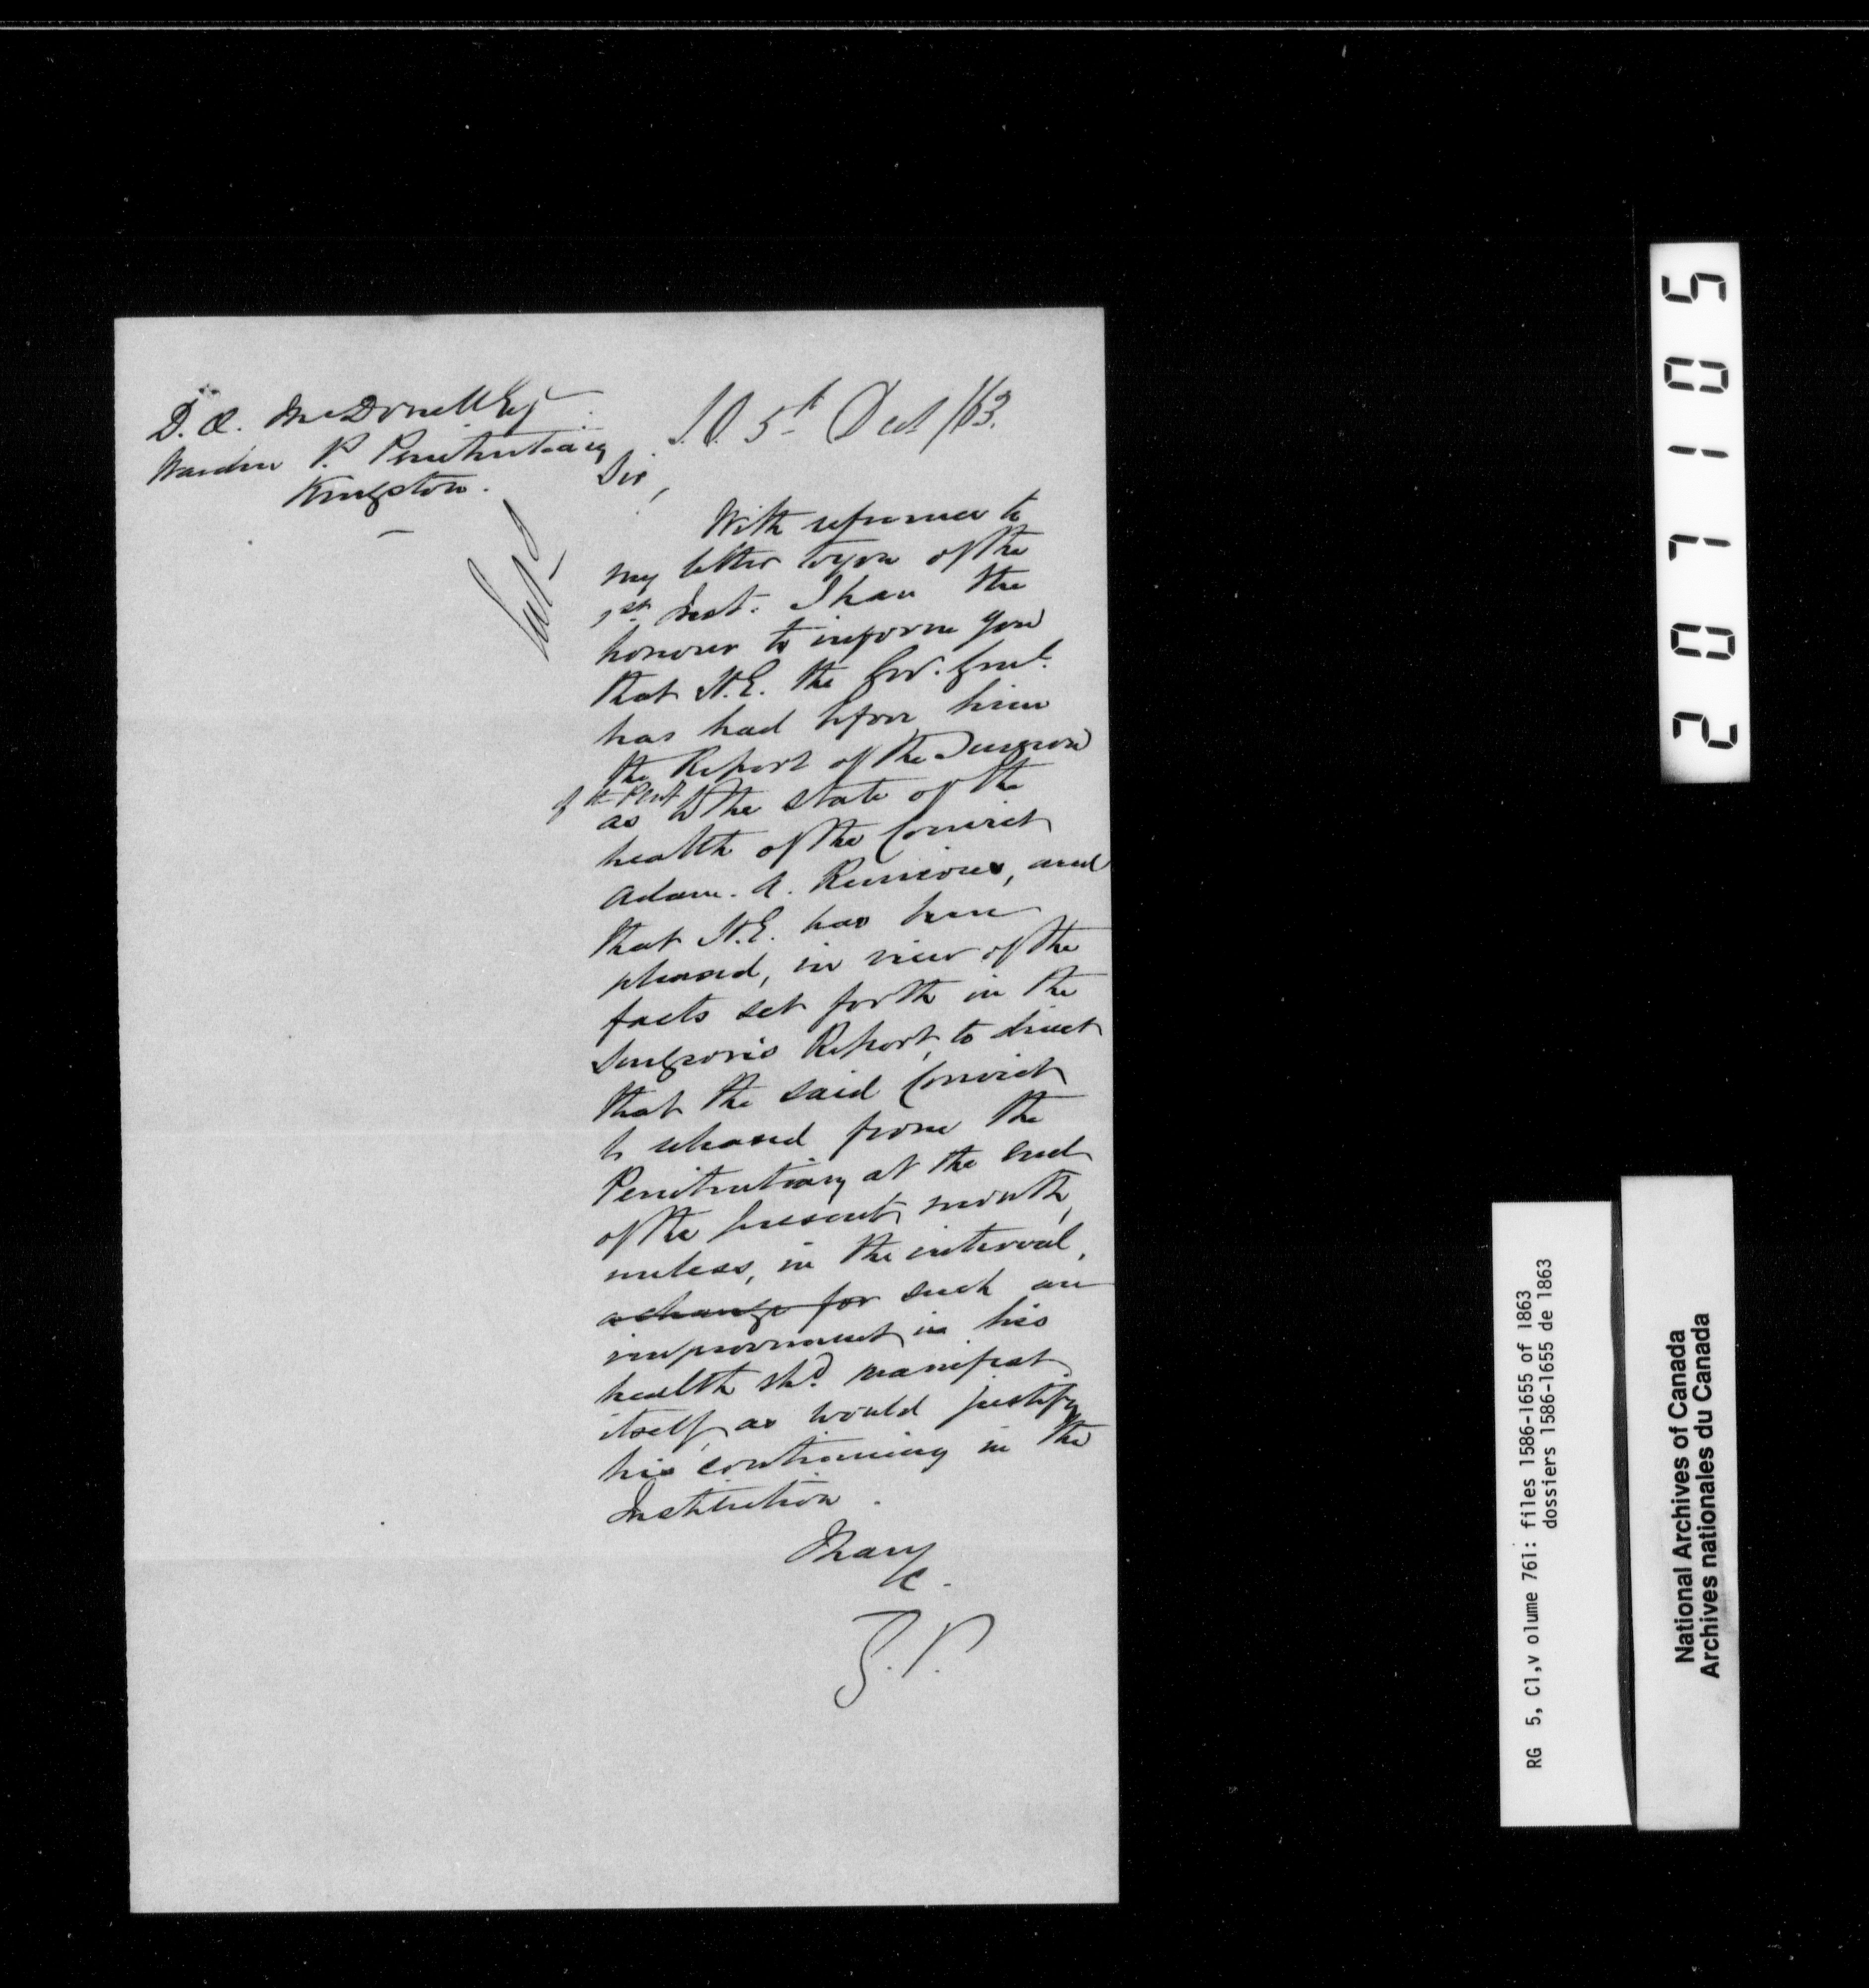 D. Æ. McDonell Esq
Warden P. Penitentiary
Kingston.
S.O. 5th Dect /63.
Sir,
With reference to
my letter to you of the
1st Inst. I have the
honour to inform you
that H.E. the Gov. Genl.
has had before him
the Report of the Surgeon
of the Peny
as to the state of the
health of the Convict
Adam. A. and
that H.E. has been
pleased, in view of the
facts set forth in the
Surgeon's Report, to direct
that the said Convict
be released from the
Penitentiary at the end
of the present month,
unless, in the interval,
a change for such an
improvement in his
health shd. manifest
itself, as would justify
his continuing in the
Institution.
I have
&c.
2071105
RG 5, C1,v olume 761: files 1586-1655 of 1863
dossiers 1586-1655 de 1863
National Archives of Canada
Archives nationales du Canada